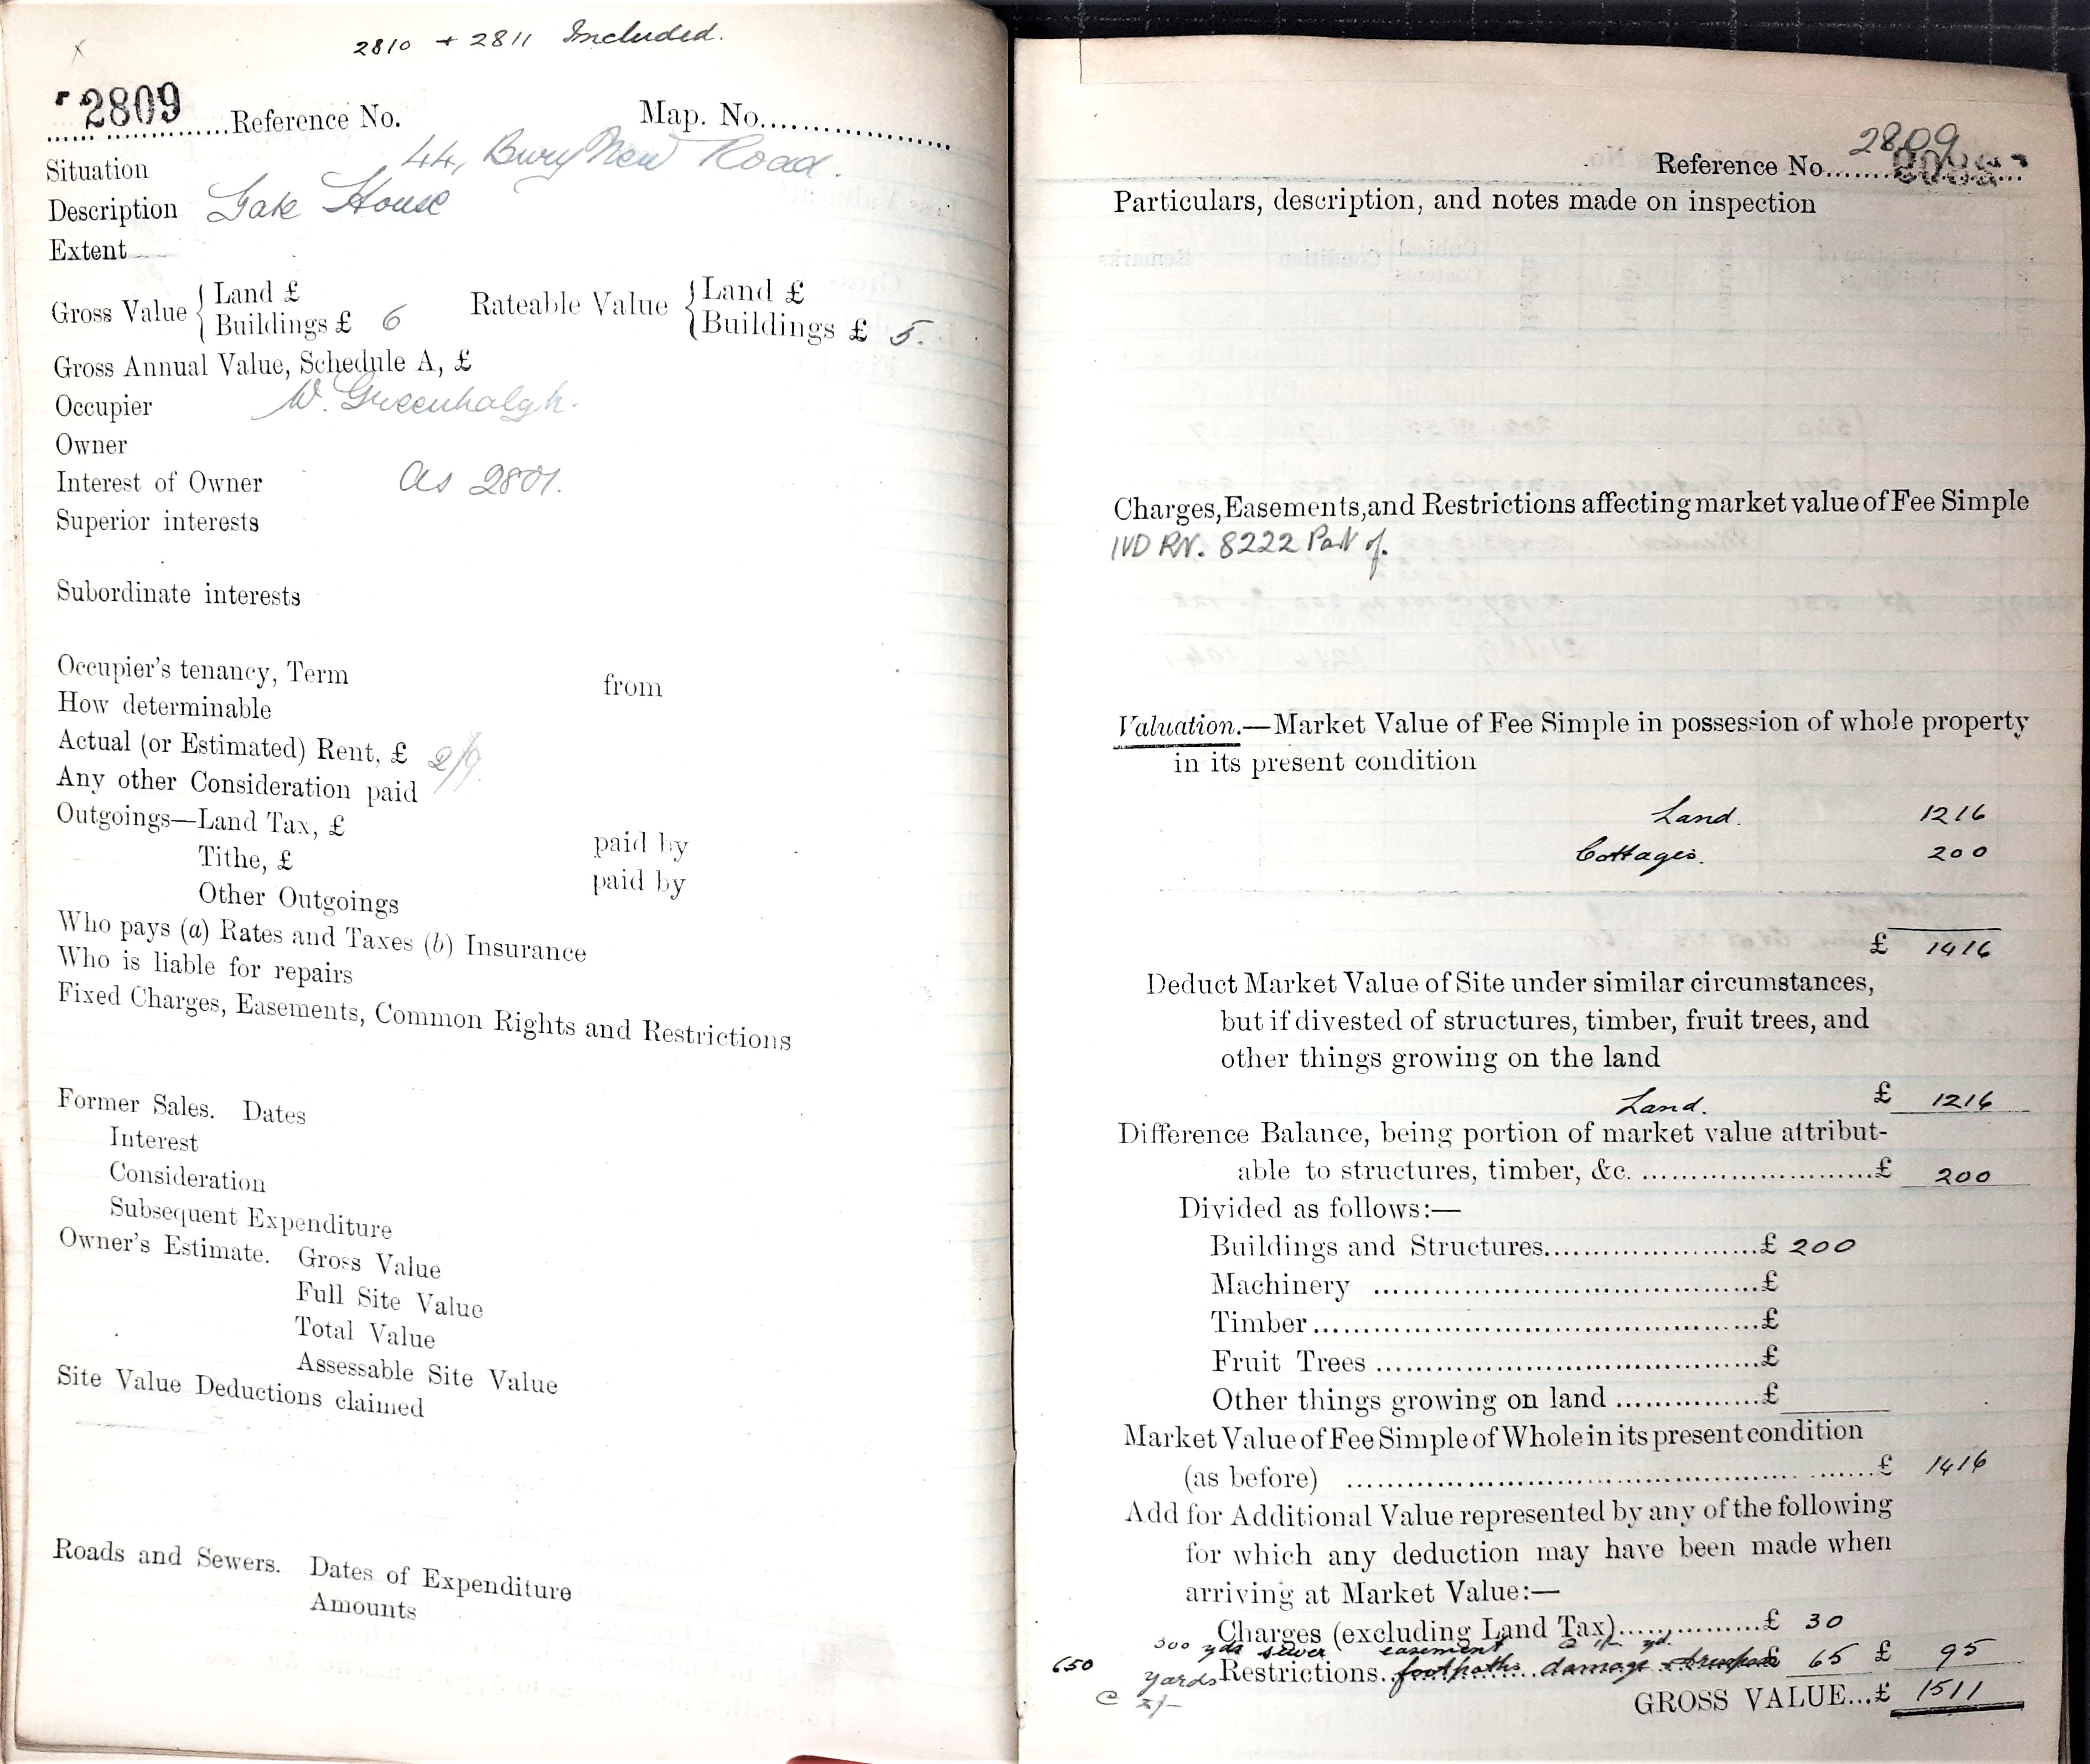 2810 + 2811 Included.
2809 Reference No. Map. No.
Situation 44, Bury New Road.
Description Gate House
Extent
Gross Value { Land £
Buildings £ 6
Rateable Value { Land £
Buildings £ 5.
Gross Annual Value, Schedule A, £
Occupier W. Greenhalgh.
Owner
Interest of Owner As 2801.
Superior interests
Subordinate interests
Occupier's tenancy, Term from
How determinable
Actual (or Estimated) Rent, £ 2/9.
Any other Consideration paid
Outgoings—Land Tax, £ paid by
Tithe, £ paid by
Other Outgoings
Who pays (a) Rates and Taxes (b) Insurance
Who is liable for repairs
Fixed Charges, Easements, Common Rights and Restrictions
Former Sales. Dates
Interest
Consideration
Subsequent Expenditure
Owner's Estimate. Gross Value
Full Site Value
Total Value
Assessable Site Value
Site Value Deductions claimed
Roads and Sewers. Dates of Expenditure
Amounts
Reference No. 2809
Particulars, description, and notes made on inspection
Charges, Easements, and Restrictions affecting market value of Fee Simple
IVD RN. 8222 Part of.
Valuation.—Market Value of Fee Simple in possession of whole property
in its present condition
Land. 1216
Cottages. 200
£ 1416
Deduct Market Value of Site under similar circumstances,
but if divested of structures, timber, fruit trees, and
other things growing on the land
Land. £ 1216
Difference Balance, being portion of market value attribut-
able to structures, timber, &c. £ 200
Divided as follows:—
Buildings and Structures £ 200
Machinery £
Timber £
Fruit Trees £
Other things growing on land £
Market Value of Fee Simple of Whole in its present condition
(as before) £ 1416
Add for Additional Value represented by any of the following
for which any deduction may have been made when
arriving at Market Value:—
Charges (excluding Land Tax) £ 30
300 yds sewer easement @ 2/- yd.
650 yards Restrictions footpaths damage £ 65 £ 95
GROSS VALUE...£ 1511